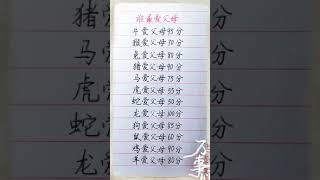 谁最爱父母
牛爱父母95分
猴爱父母70分
兔爱父母80分
猪爱父母90分
马爱父母75分
虎爱父母55分
蛇爱父母50分
龙爱父母100分
狗爱父母85分
鼠爱父母60分
鸡爱父母40分
羊爱父母80分